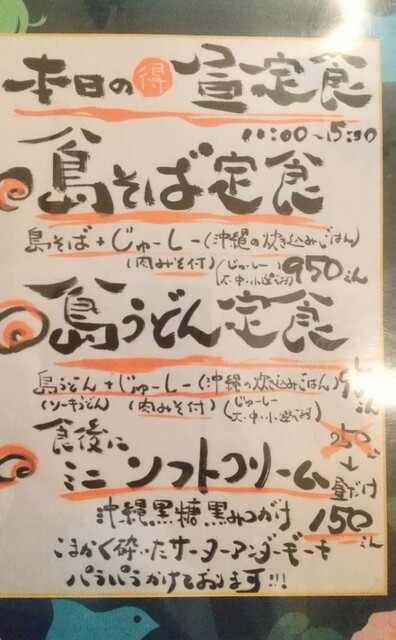 本日の得昼定食
11:00~15:30
島そば定食
島そば+じゅーしー(沖縄の炊き込みごはん)
(肉みそ付)(じゅーしー大・中・小選べます)950えん
島うどん定食
島うどん+じゅーしー(沖縄の炊込みごはん)
(ソーキうどん)(肉みそ付)(じゅーしー大・中・小選べます)
食後に 250
ミニソフトクリーム ↓昼だけ
沖縄黒糖黒みつがけ 150えん
こまかく砕いたサーターアンダギーを
パラパラかけております!!!